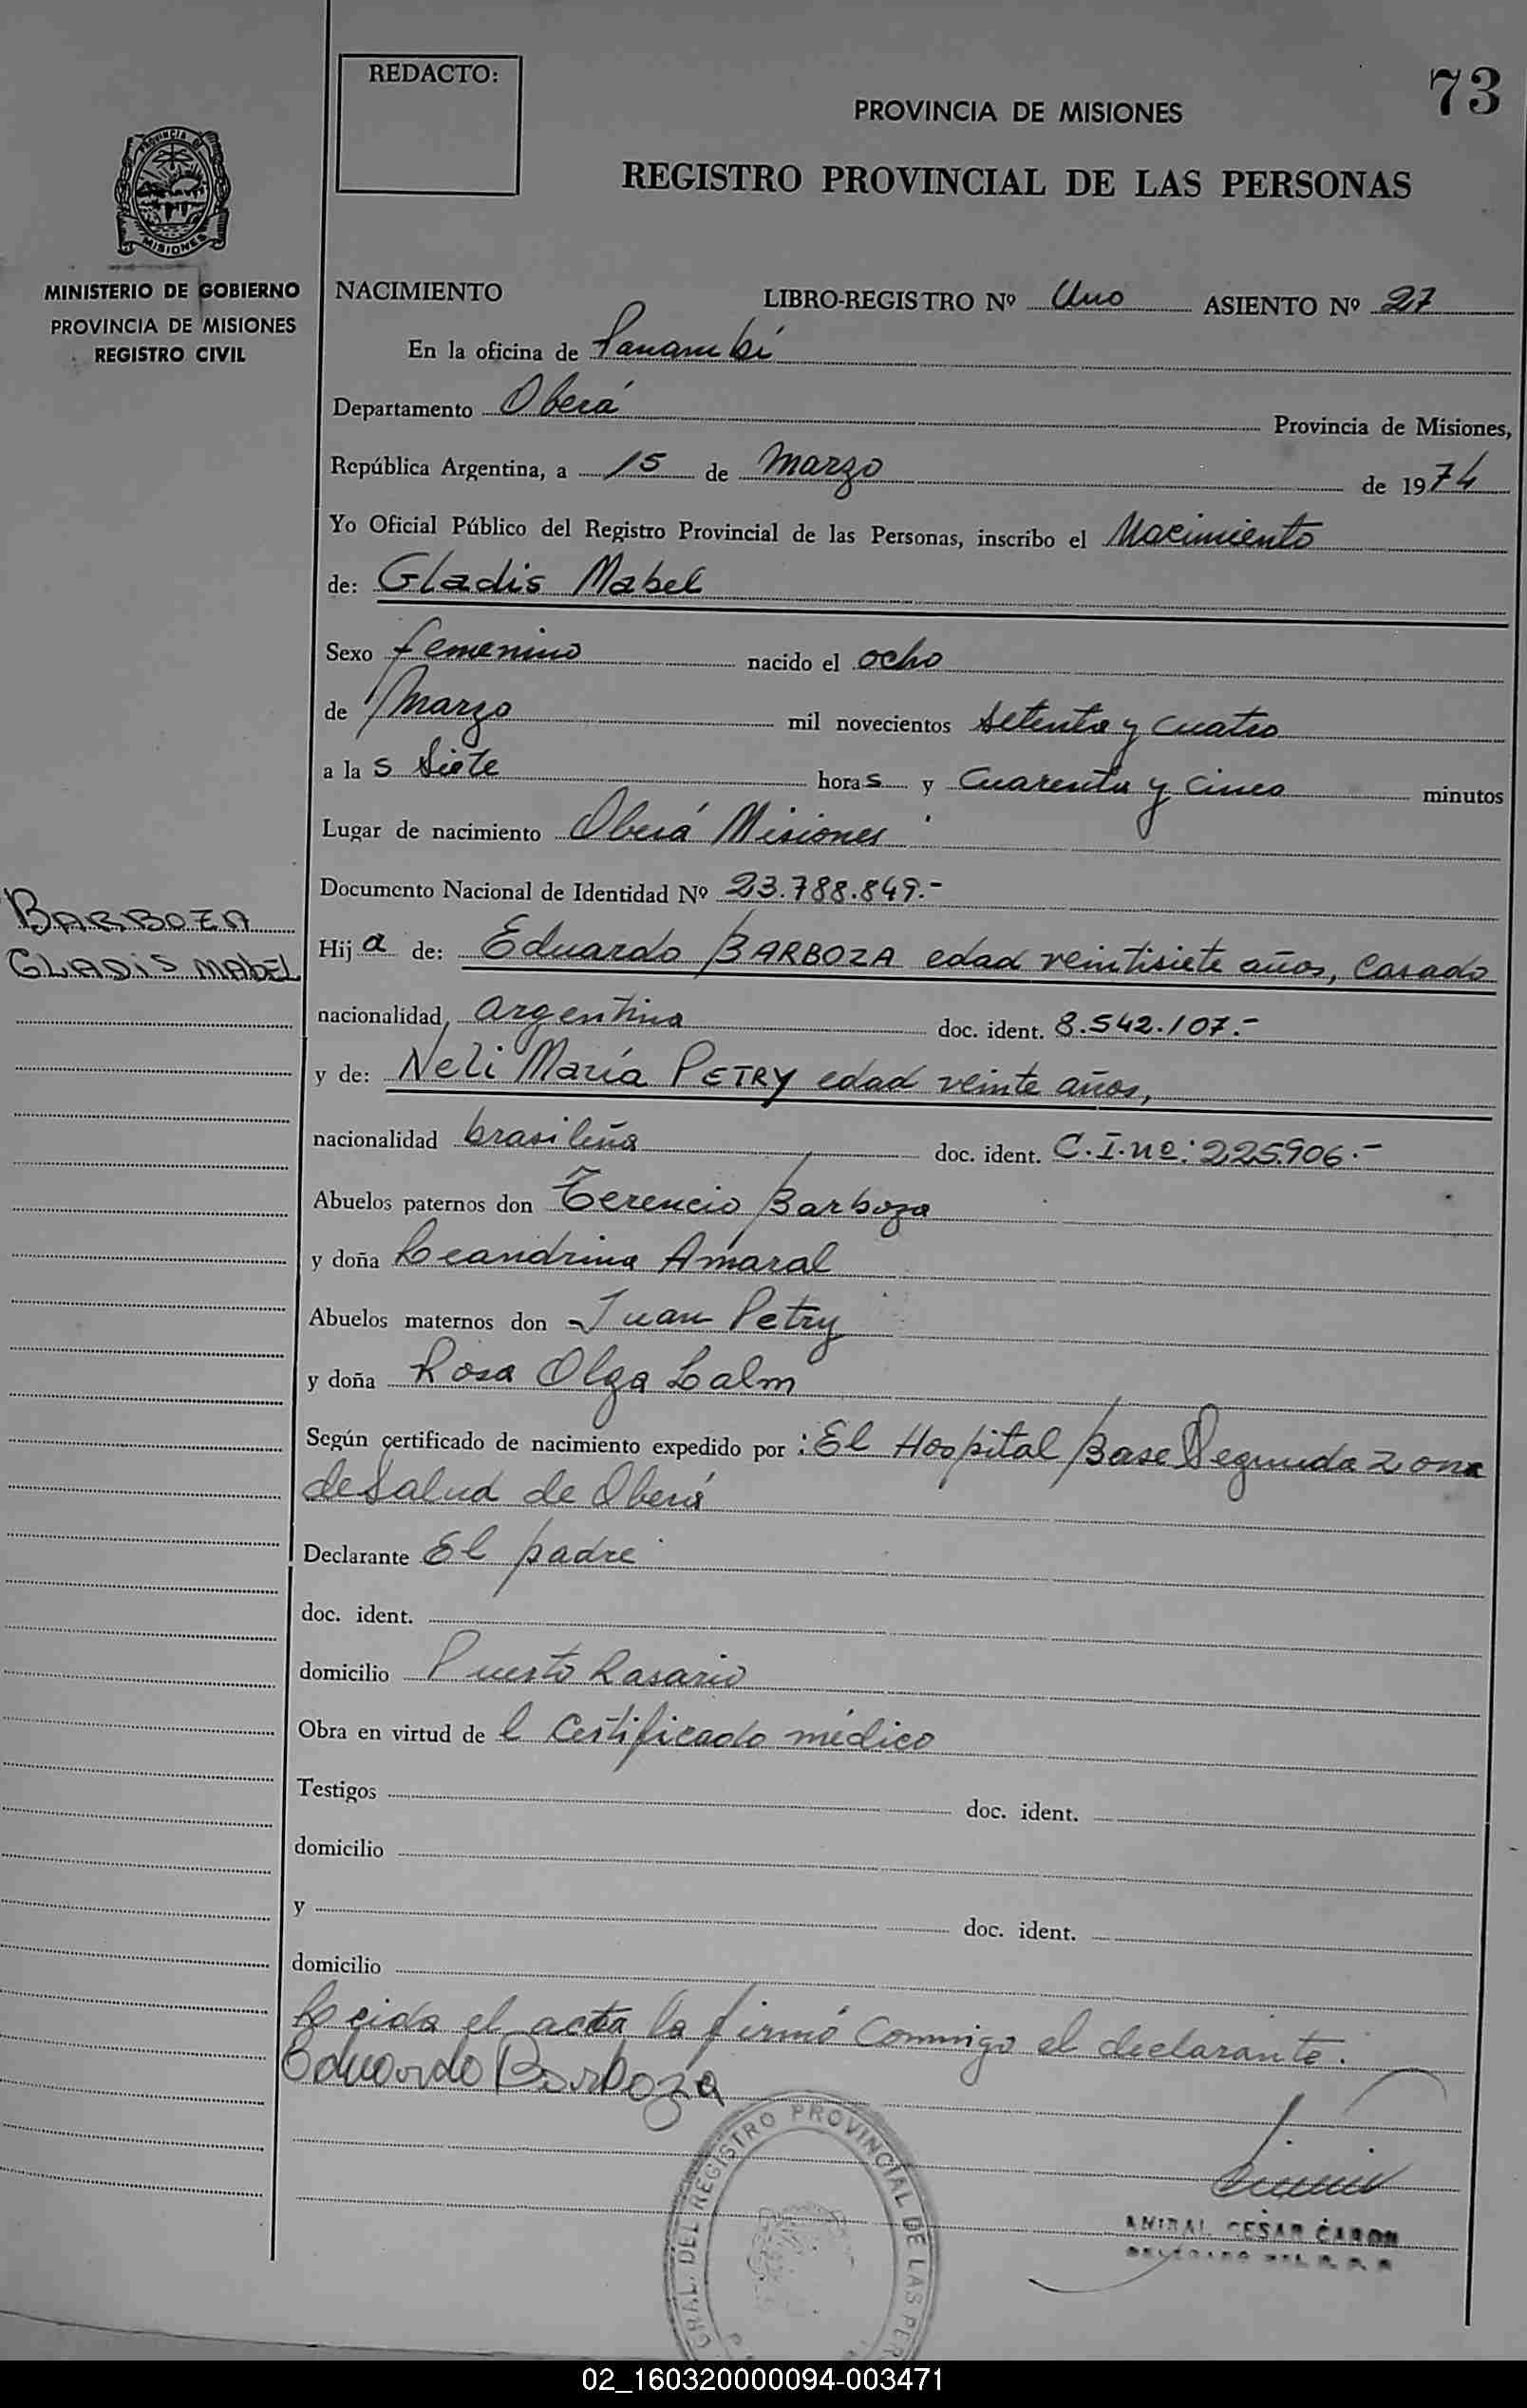 REDACTO:
73
PROVINCIA DE MISIONES
REGISTRO PROVINCIAL DE LAS PERSONAS
PROVINCIA DE
MISIONES
MINISTERIO DE GOBIERNO
PROVINCIA DE MISIONES
REGISTRO CIVIL
NACIMIENTO LIBRO-REGISTRO Nº Uno ASIENTO Nº 27
En la oficina de Panambí
Departamento Oberá Provincia de Misiones,
República Argentina, a 15 de Marzo de 1974
Yo Oficial Público del Registro Provincial de las Personas, inscribo el Nacimiento
de: Gladis Mabel
Sexo femenino nacido el ocho
de Marzo mil novecientos setenta y cuatro
a la s siete hora s y cuarenta y cinco minutos
Lugar de nacimiento Oberá Misiones
Documento Nacional de Identidad Nº 23.788.849.-
BARBOZA
GLADIS MABEL
Hij a de: Eduardo BARBOZA edad veintisiete años, casado
nacionalidad argentina doc. ident. 8.542.107.-
y de: Neli María PETRY edad veinte años,
nacionalidad brasileña doc. ident. C.I.nº: 225.906.-
Abuelos paternos don Terencio Barboza
y doña Leandrina Amaral
Abuelos maternos don Juan Petry
y doña Rosa Olga Lalm
Según certificado de nacimiento expedido por : El Hospital Base Segunda Zona
de Salud de Oberá
Declarante El padre
doc. ident.
domicilio Puesto Rosario
Obra en virtud de l certificado médico
Testigos doc. ident.
domicilio
y doc. ident.
domicilio
Leída el acta la firmó conmigo el declarante.
Eduardo Barboza
GRAL. DEL REGISTRO PROVINCIAL DE LAS PER
ANIBAL CESAR CARON
DELEGADO DEL R. P. P.
02_160320000094-003471